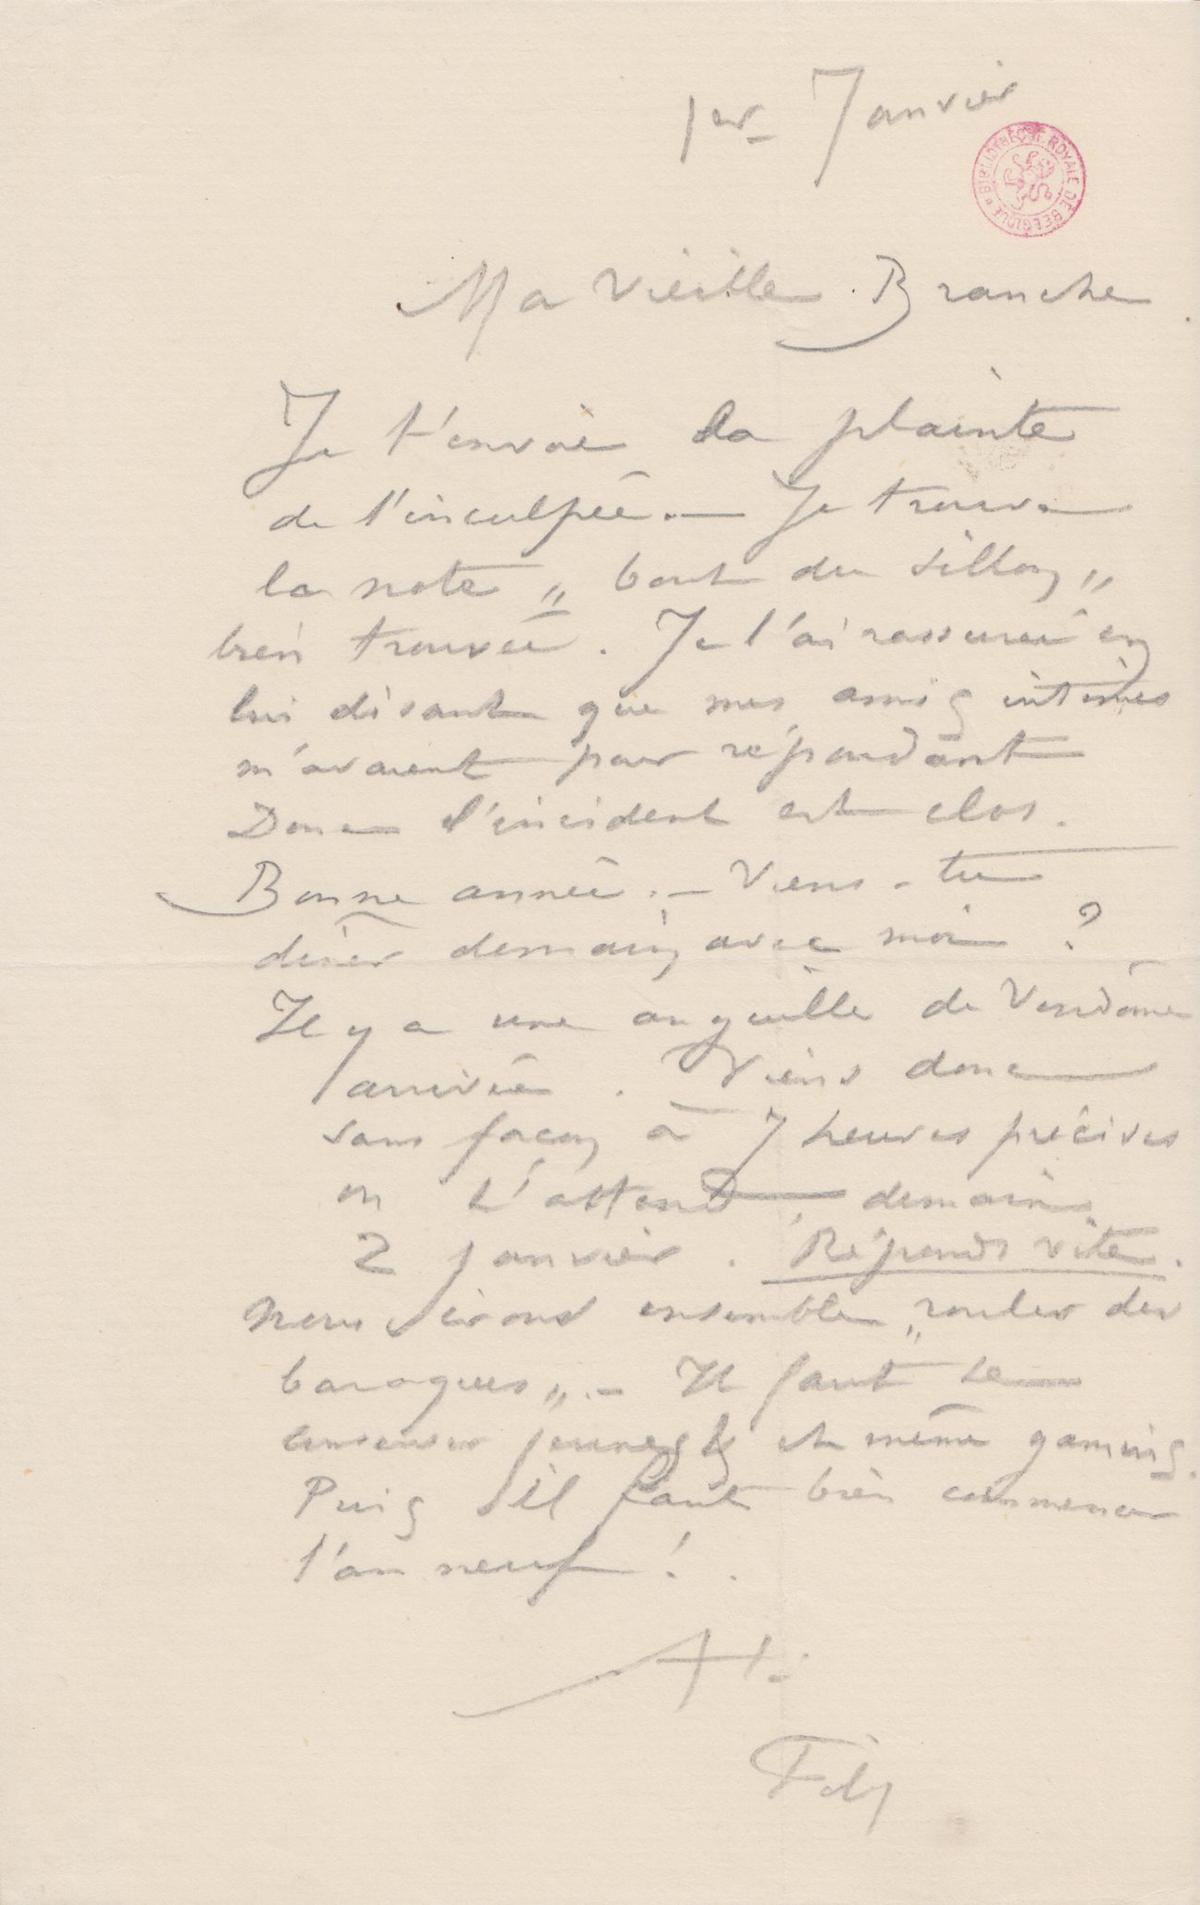 1er Janvier
BIBLIOTHÈQUE ROYALE DE BELGIQUE
Ma Vieille Branche
Je t'envoie la plainte
de l'inculpée. — Je trouve
la note „ bout du sillon „
bien trouvée. Je l'ai rassurée en
lui disant que mes amis intimes
m'avaient pour répondant
Donc l'incident est clos.
Bonne année. — Viens-tu
diner demain avec moi ?
Il y a une anguille de Vendôme
arrivée. Viens donc
sans façon à 7 heures précises
on t'attend demain
2 janvier. Répends vite.
Nous irons ensemble „ rouler des
baraques „. — Il faut se
conserver jeunes et même gamins.
Puis il faut bien commencer
l'an neuf !.
À t.
Fély